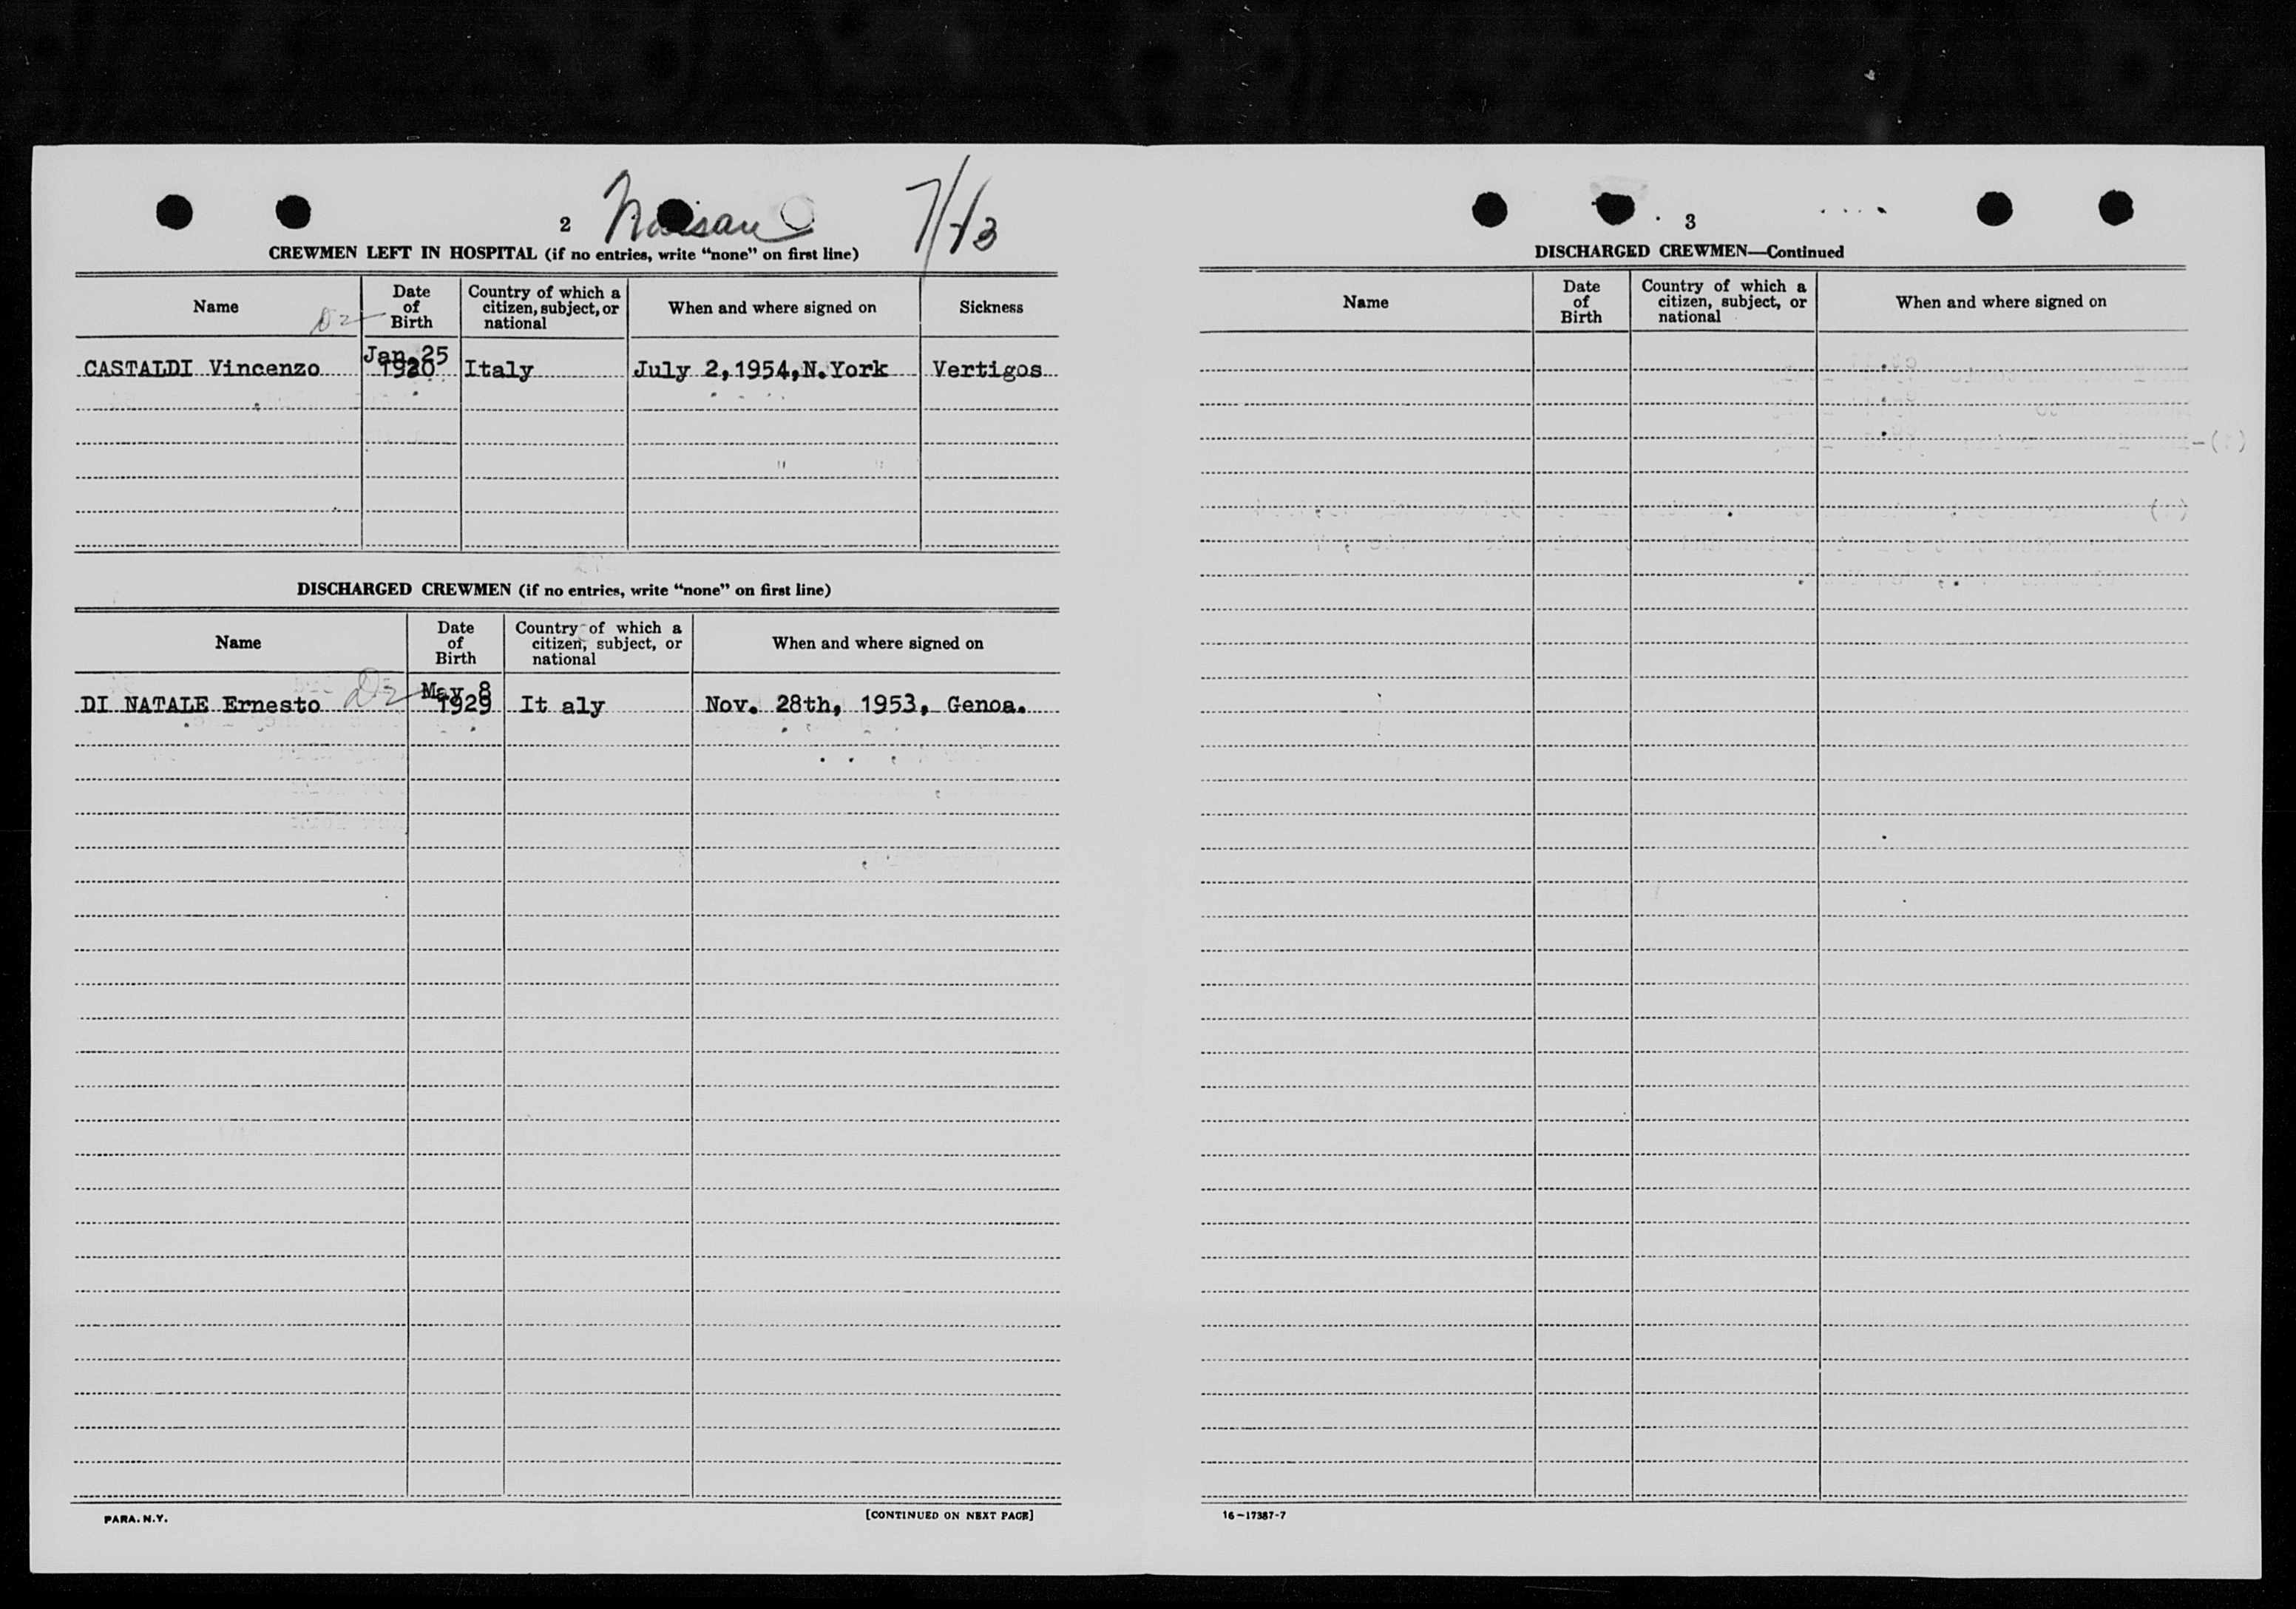 2 Nassau 7/13
CREWMEN LEFT IN HOSPITAL (if no entries, write “none” on first line)
Name
Date of Birth
Country of which a citizen, subject, or national
When and where signed on
Sickness
D2
CASTALDI Vincenzo Jan. 25 1920 Italy July 2,1954,N.York Vertigos
DISCHARGED CREWMEN (if no entries, write “none” on first line)
Name
Date of Birth
Country of which a citizen, subject, or national
When and where signed on
DI NATALE Ernesto D2 May 8 1929 It aly Nov. 28th, 1953, Genoa.
PARA. N.Y.
[CONTINUED ON NEXT PAGE]
3
DISCHARGED CREWMEN—Continued
Name
Date of Birth
Country of which a citizen, subject, or national
When and where signed on
16—17387-7